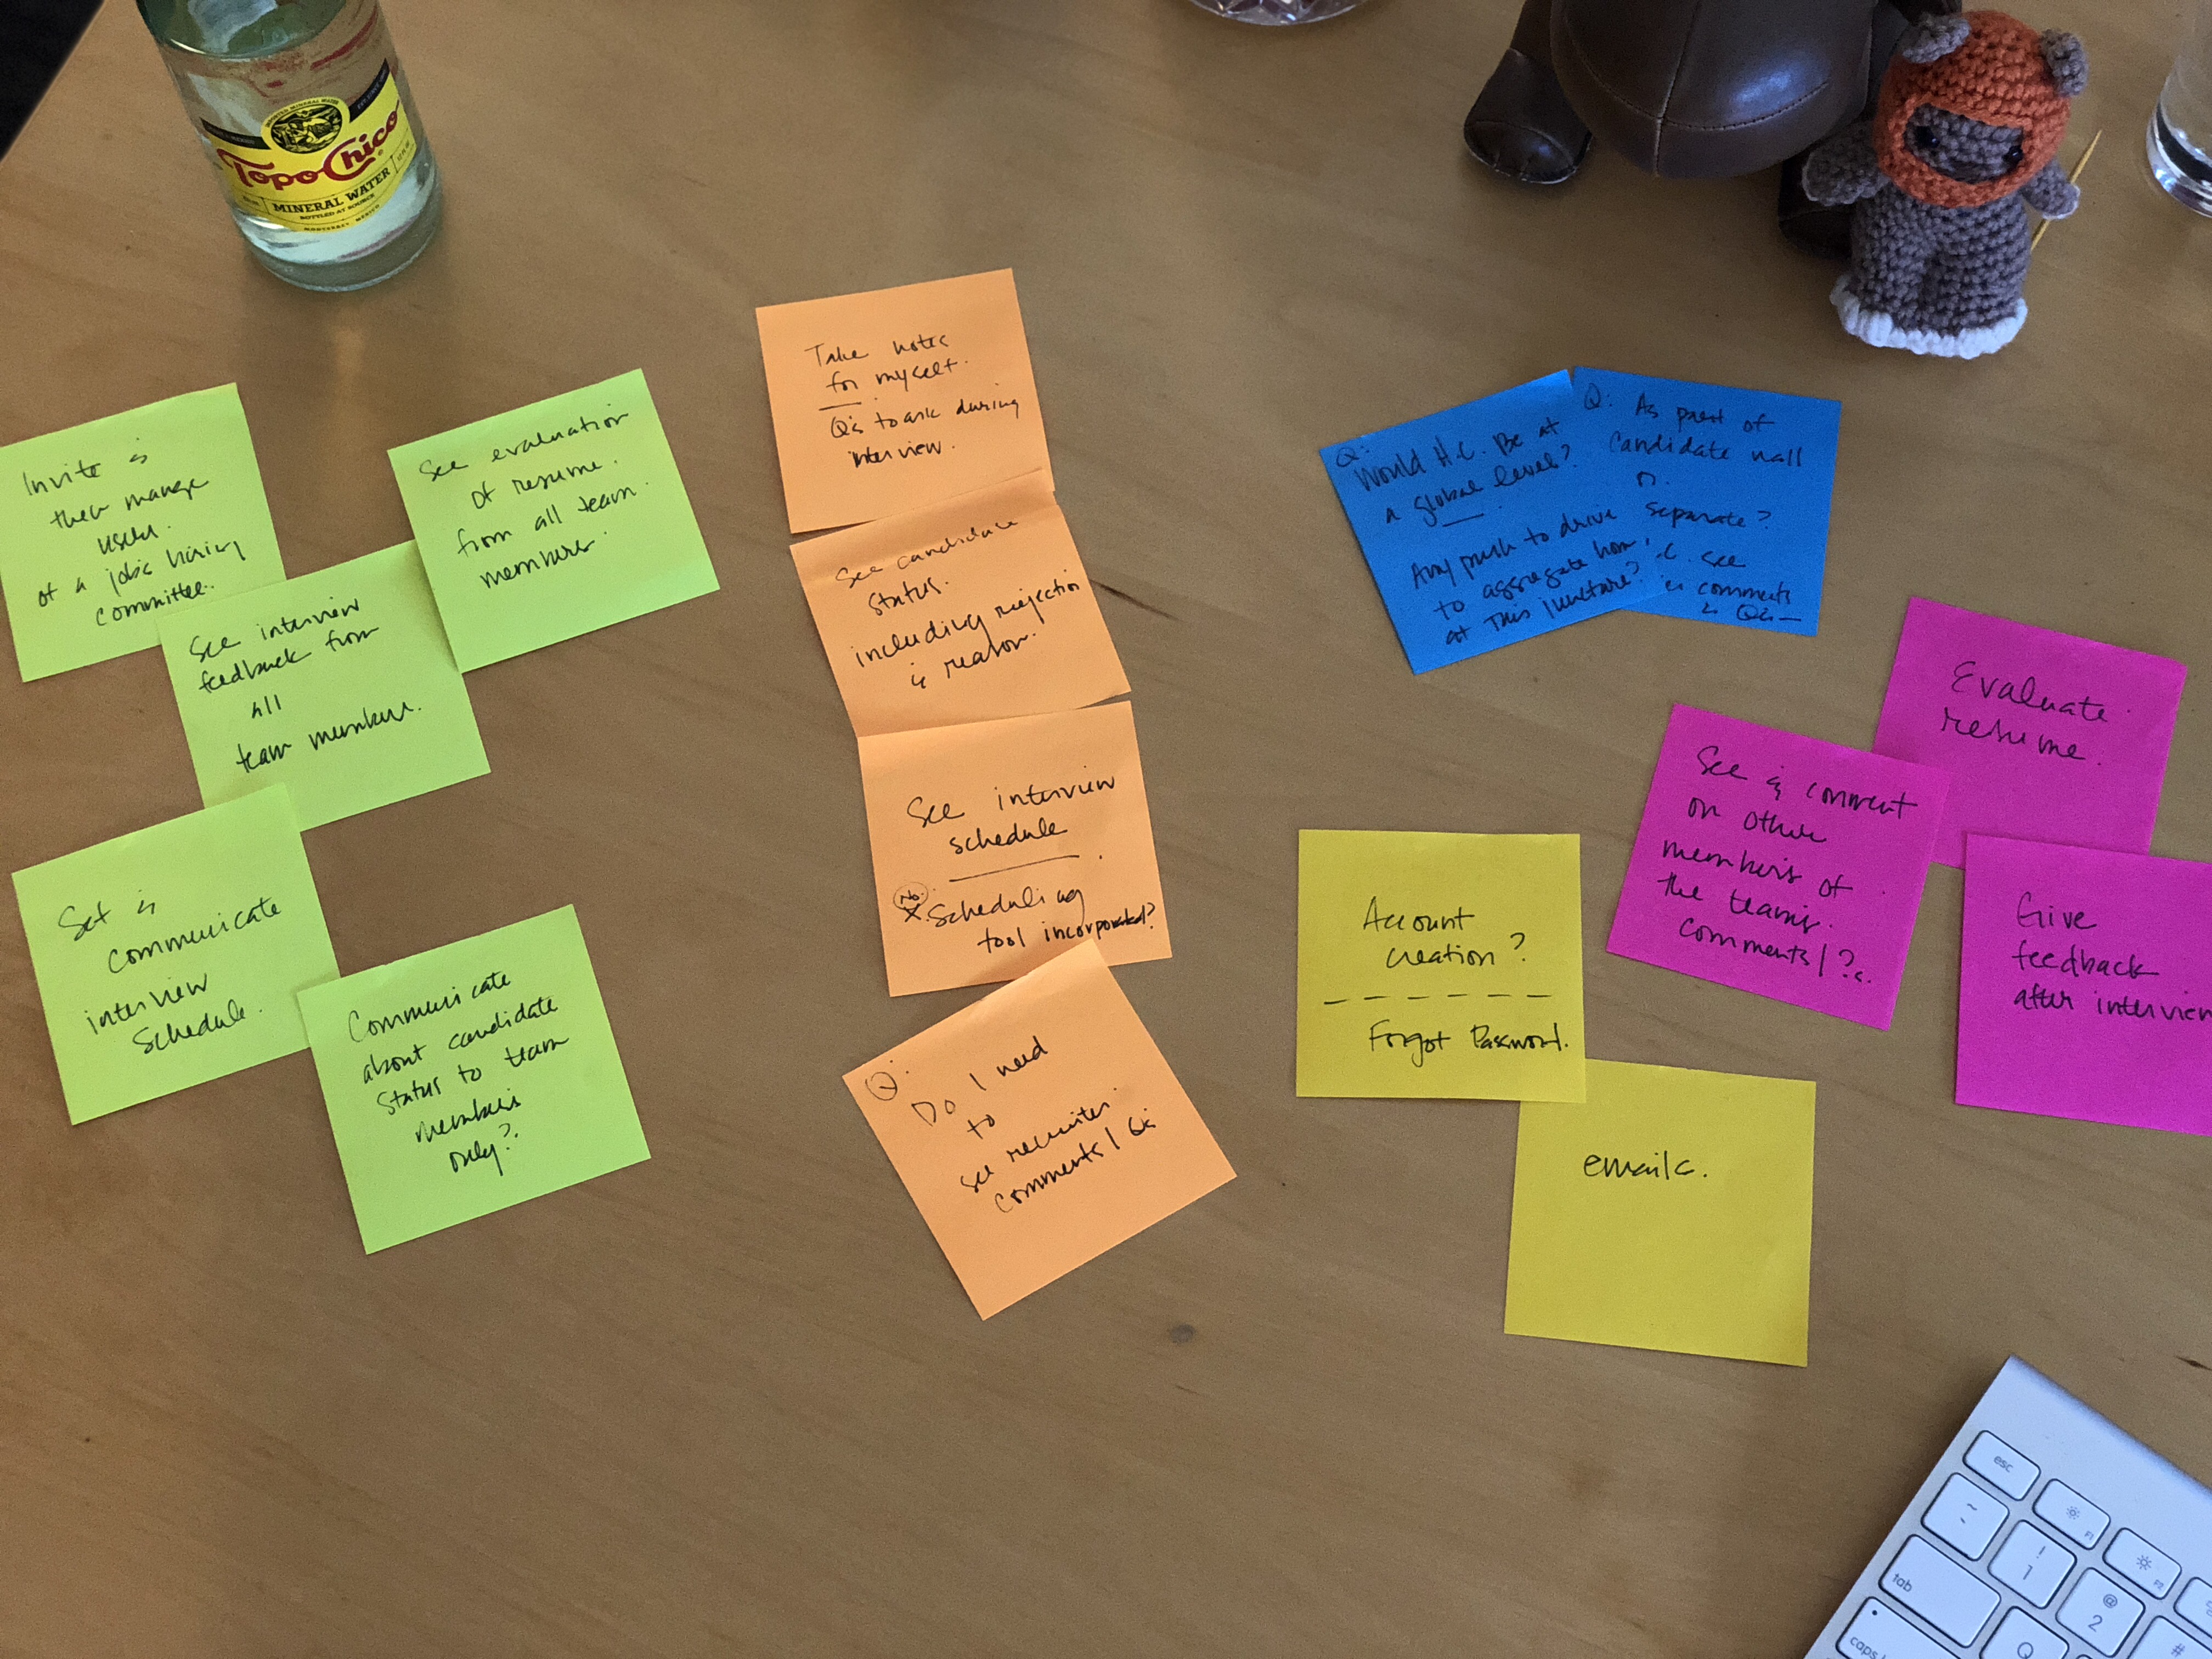 TopoChico
MINERAL WATER
BOTTLED AT SOURCE
MONTERREY MEXICO
Invite &
then manage
users.
of a job's hiring
committee.
See evaluation
of resume.
from all team
members.
See interview
feedback from
all
team members.
Set &
communicate
interview
schedule.
Communicate
about candidate
status to team
members
only?
Take notes
for myself.
Q's to ask during
interview.
See candidate
status.
including rejection
& reason.
See interview
schedule
No.
X. Scheduling
tool incorporated?
Q:
Do I need
to
see recruiter
comments / Q's
Q:
Would H.C. Be at
a global level?
Any push to drive
to aggregate
at this juncture?
Q: As part of
candidate wall
or
separate?
see
comments
& Q's
Evaluate
resume.
See & comment
on other
members of
the team's
comments / ?s.
Give
feedback
after interview
Account
creation?
Forgot Password.
emails.
esc
F1
F2
~
!
1
@
2
#
tab
Q
caps